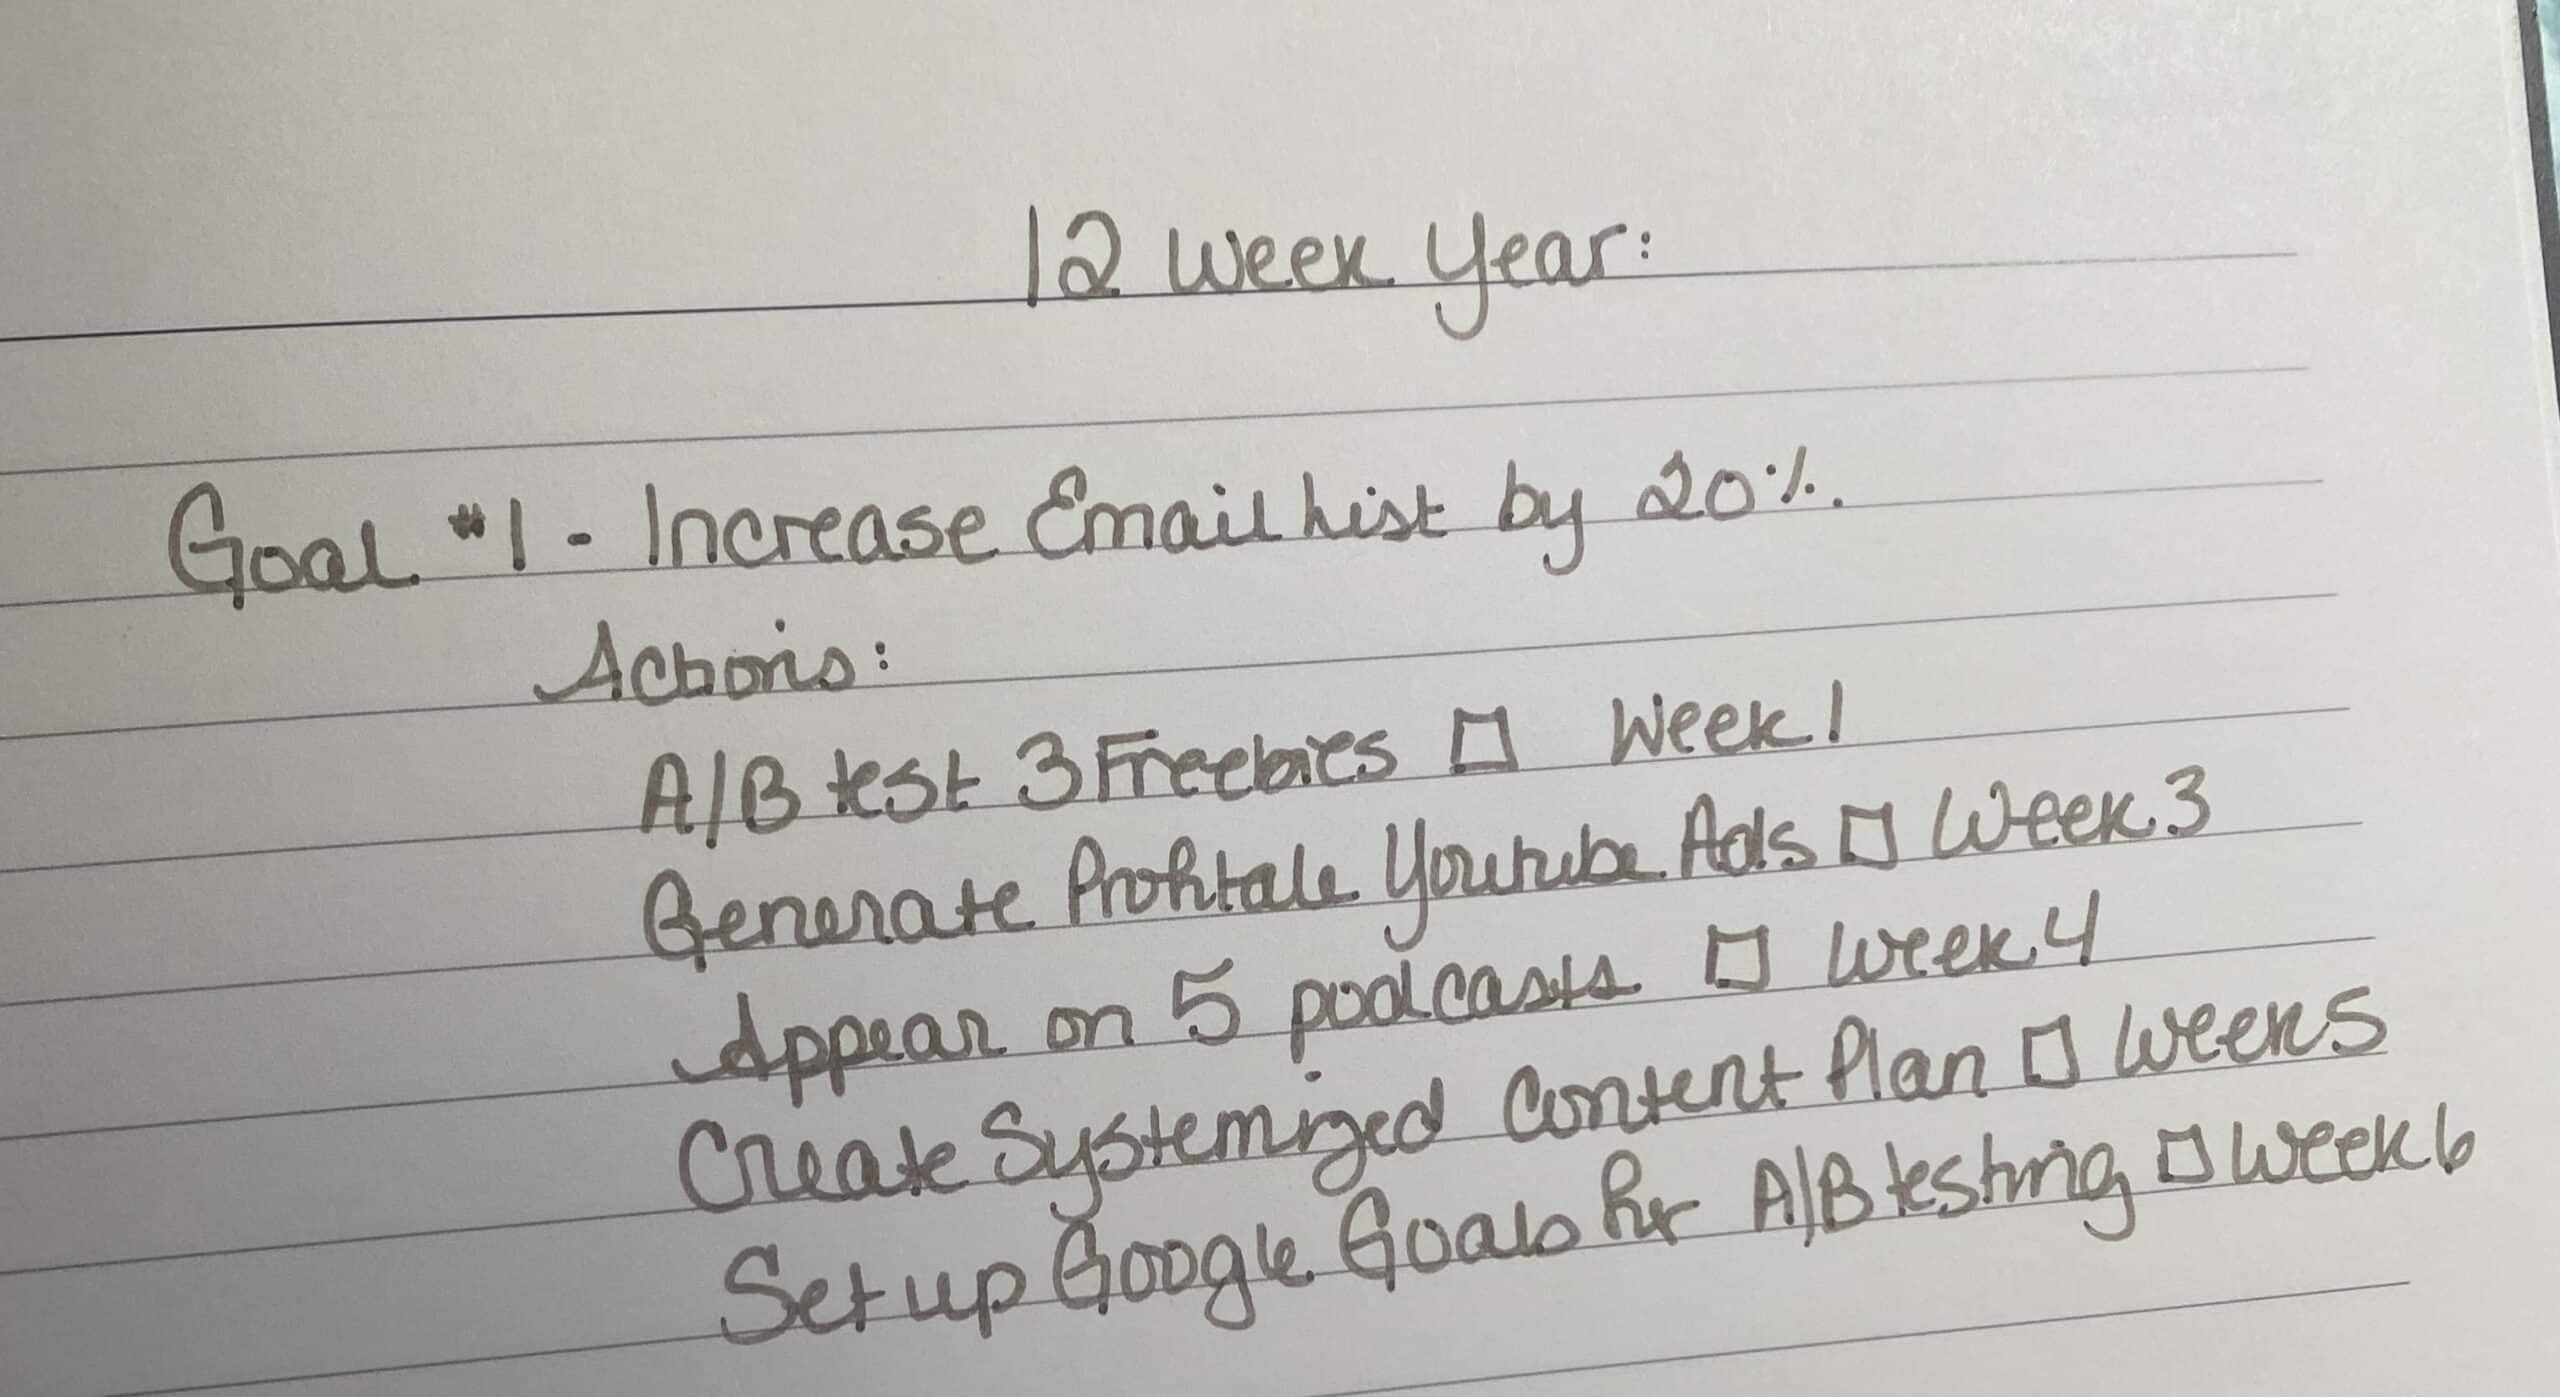 12 Week Year:
Goal #1 - Increase Email List by 20%.
Actions:
A/B test 3 Freebies □ Week 1
Generate Profitale Youtube Ads □ Week 3
Appear on 5 podcasts □ Week 4
Create Systemized Content Plan □ Week 5
Set up Google Goals for A/B testing □ Week 6